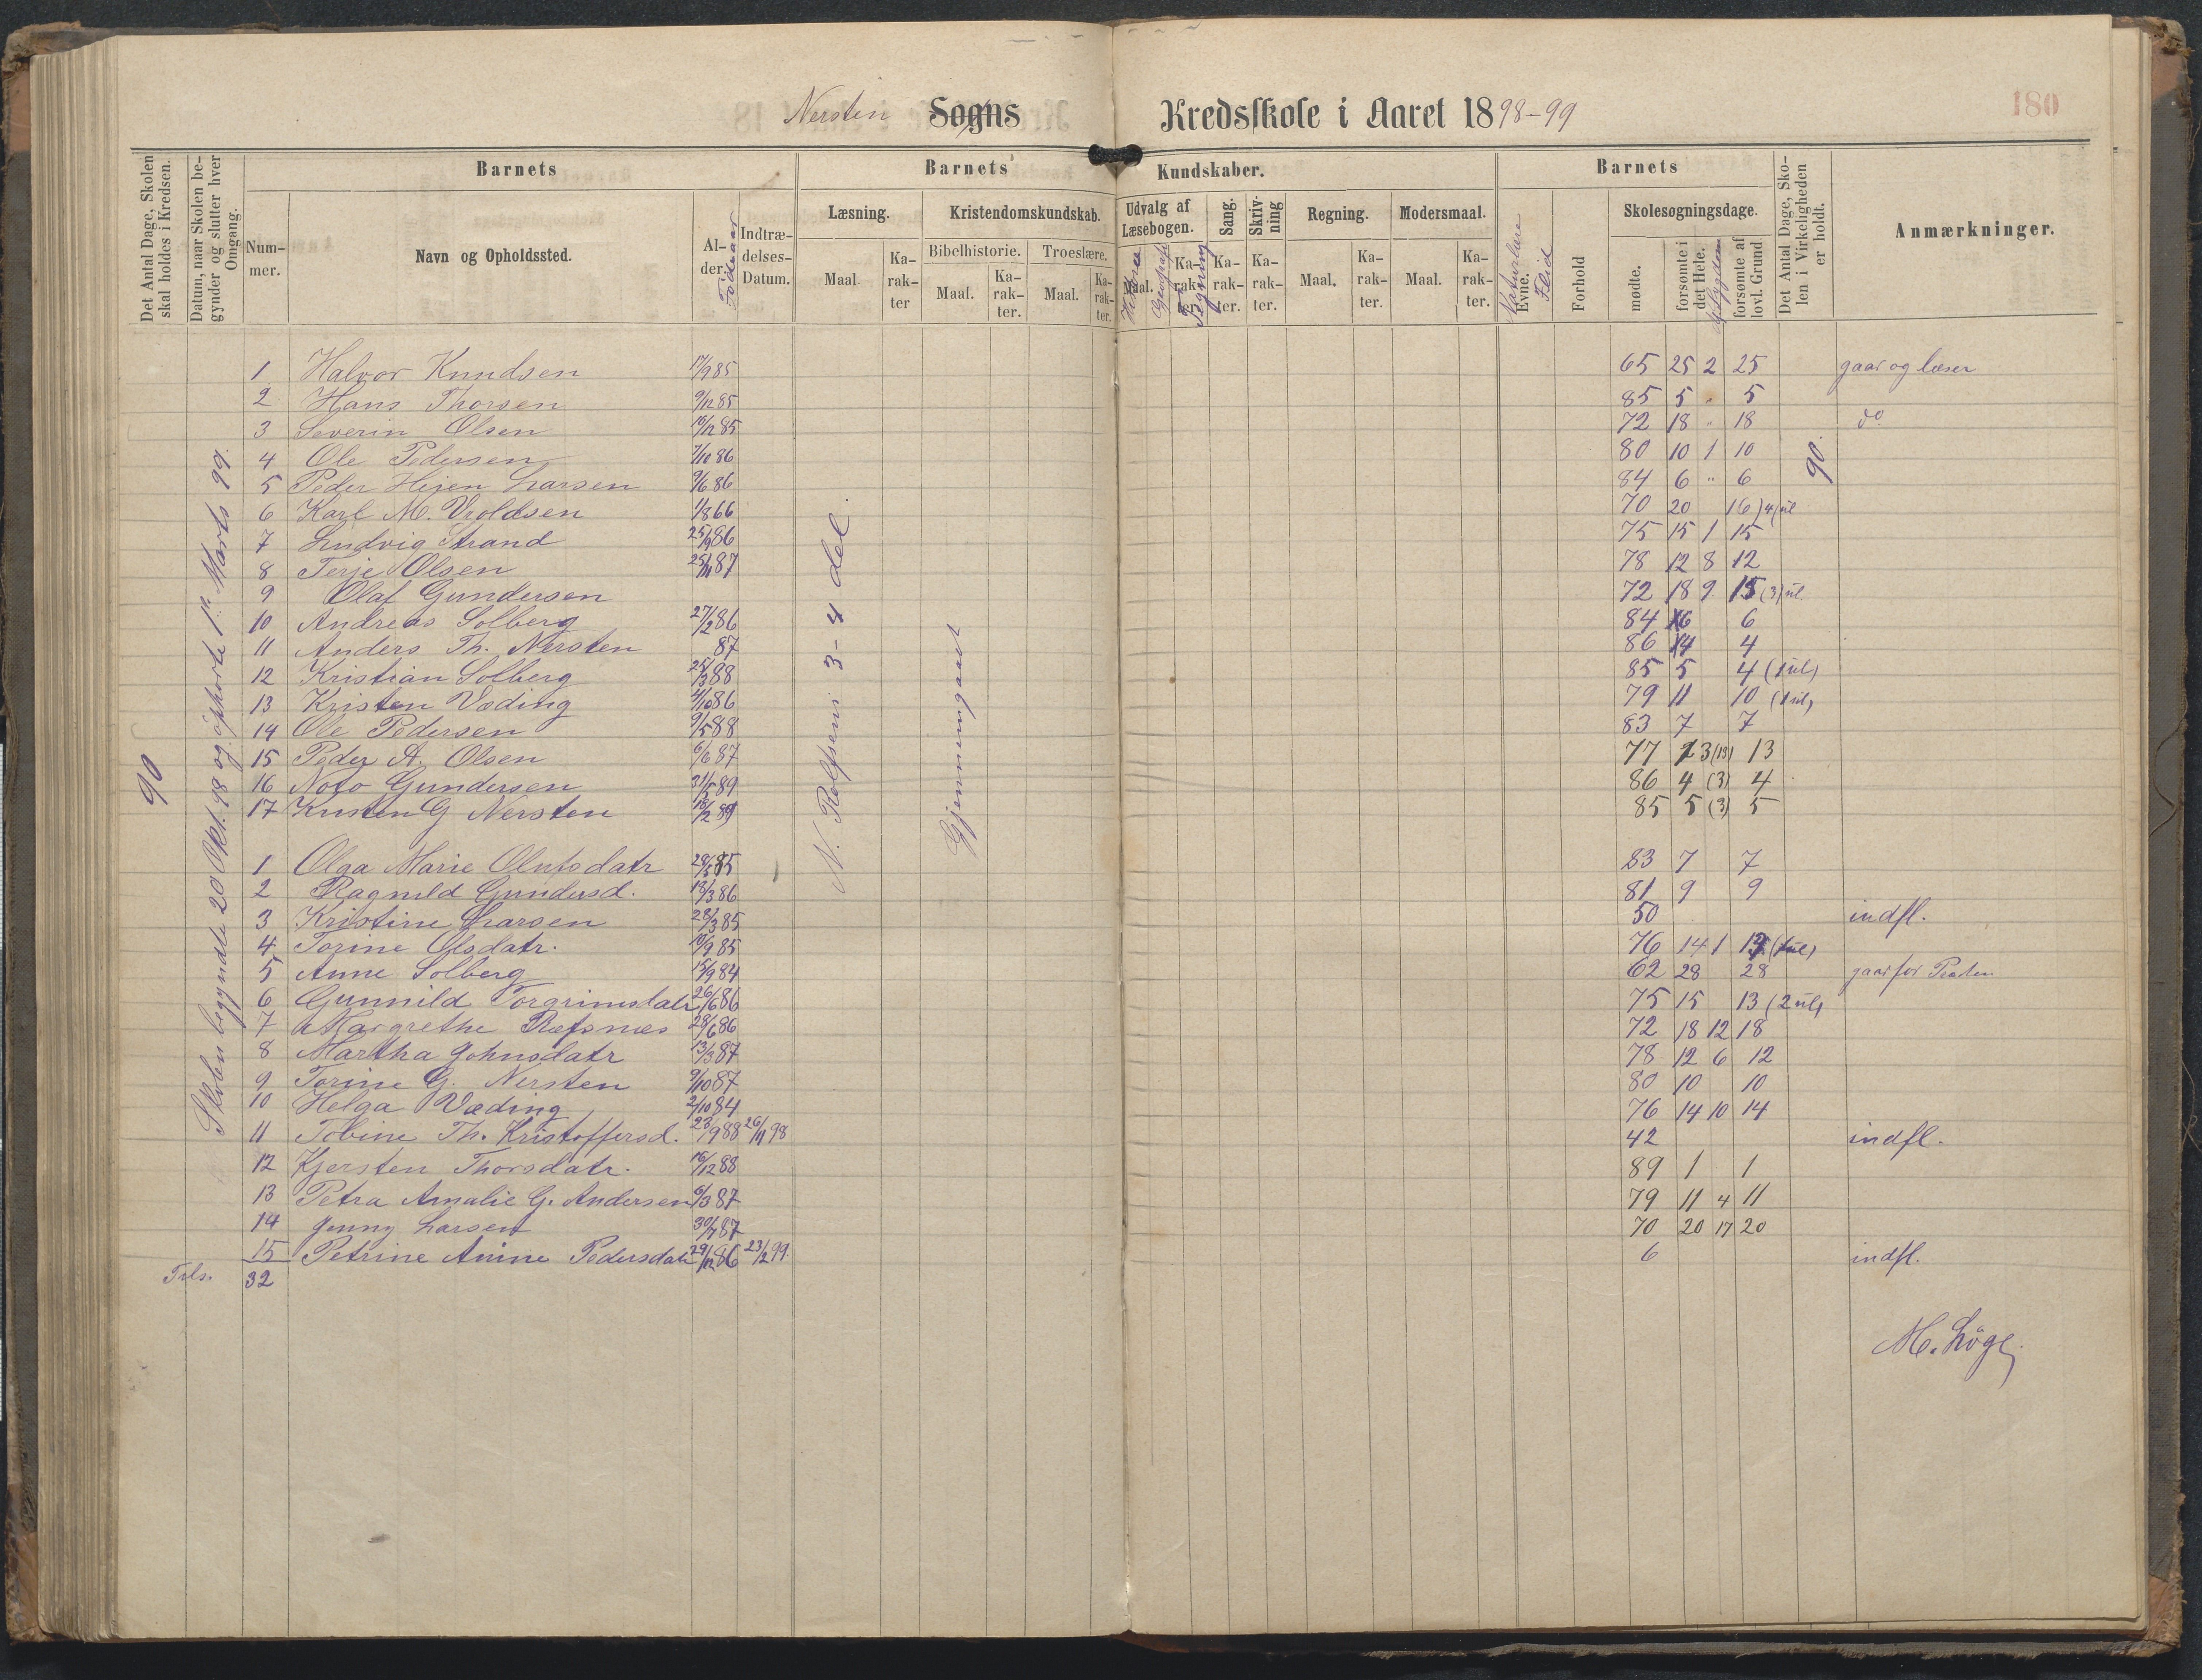 Nersten Sogns Kredsskole i Aaret 1898-99
180
Det Antal Dage, Skolen skal holdes i Kredsen.
Datum, naar Skolen begynder og slutter hver Omgang.
Barnets
Nummer.
Navn og Opholdssted.
Alder
Födeaar
Indtrædelses-Datum.
Barnets Kundskaber.
Læsning.
Maal.
Karakter
Kristendomskundskab.
Bibelhistorie.
Maal.
Karakter.
Troeslære.
Maal.
Karakter.
Udvalg af Læsebogen.
Maal.
Karakter.
Geografi
Tegning
Sang.
Karakter.
Skrivning
Karakter.
Regning.
Maal.
Karakter.
Modersmaal.
Maal.
Karakter.
Barnets
Naturlære
Evne.
Flid
Forhold
Skolesøgningsdage.
mødte.
forsømte i det Hele.
forsømte af lovl. Grund.
Det Antal Dage, Skolen i Virkeligheden er holdt.
Anmærkninger.
90
Skolen begyndte 20 Okt. 98 og ophørte 1ste Marts 99.
N. Rolfsens 3-4 del.
Gjennemgaaet
90.
1 Halvor Knudsen 17/9 85 65 25 2 25 gaar og læser
2 Hans Thorsen 9/12 85 85 5 " 5
3 Severin Olsen 10/12 85 72 18 " 18 do
4 Ole Pedersen 7/10 86 80 10 1 10
5 Peder Hejen Larsen 9/6 86 84 6 " 6
6 Karl M. Vroldsen 1/8 66 70 20 16 (4 ul
7 Ludvig Strand 25/9 86 75 15 1 15
8 Terje Olsen 25/11 87 78 12 8 12
9 Olaf Gundersen 72 18 9 15 (3) ul
10 Andreas Solberg 27/2 86 84 6 6
11 Anders Th. Nersten 87 86 4 4
12 Kristian Solberg 25/3 88 85 5 4 (1 ul)
13 Kristen Væding 4/10 86 79 11 10 (1 ul)
14 Ole Pedersen 9/5 88 83 7 7
15 Peder A. Olsen 6/6 87 77 13 (13) 13
16 Gundersen 31/5 89 86 4 (3) 4
17 Kristen G Nersten 18/2 89 85 5 (3) 5
1 Olga Marie Olufsdatr 28/5 85 83 7 7
2 Ragnild Gundersd. 18/3 86 81 9 9
3 Kristine Larsen 28/3 85 50 indfl.
4 Torine Olsdatr. 10/9 85 76 14 1 13 (1 ul)
5 Anne Solberg 15/9 84 62 28 28 gaar for Presten
6 Gunnild Torgrimsdatr 26/6 86 75 15 13 (2 ul)
7 Margrethe Ræfsnæs 28/6 86 72 18 12 18
8 Martha Johnsdatr 13/3 87 78 12 6 12
9 Torine G. Nersten 9/10 87 80 10 10
10 Helga Væding 2/10 84 76 14 10 14
11 Tobine Th. Kristoffersd. 23/9 88 26/11 98 42 indfl.
12 Kjersten Thorsdatr. 16/12 88 89 1 1
13 Petra Amalie G. Andersen 6/3 87 79 11 4 11
14 Jenny Larsen 30/7 87 70 20 17 20
15 Petrine Anine Pedersdatr 29/12 86 23/2 99. 6 indfl.
Tils. 32
M. Löge